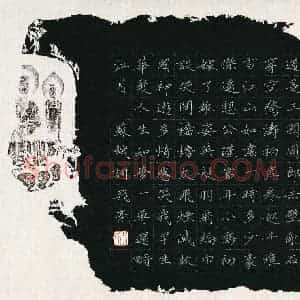 道是三國周郎赤壁亂石
穿空驚濤拍岸捲起千堆
雪江山如畫一時多少豪
傑遙想公瑾當年小喬初
嫁了雄姿英發羽扇綸巾
談笑間檣櫓灰飛煙滅故
國神遊多情應笑我早生
華髮人生如夢一尊還酹
江月 蘇軾詞
Shufaziliao.com